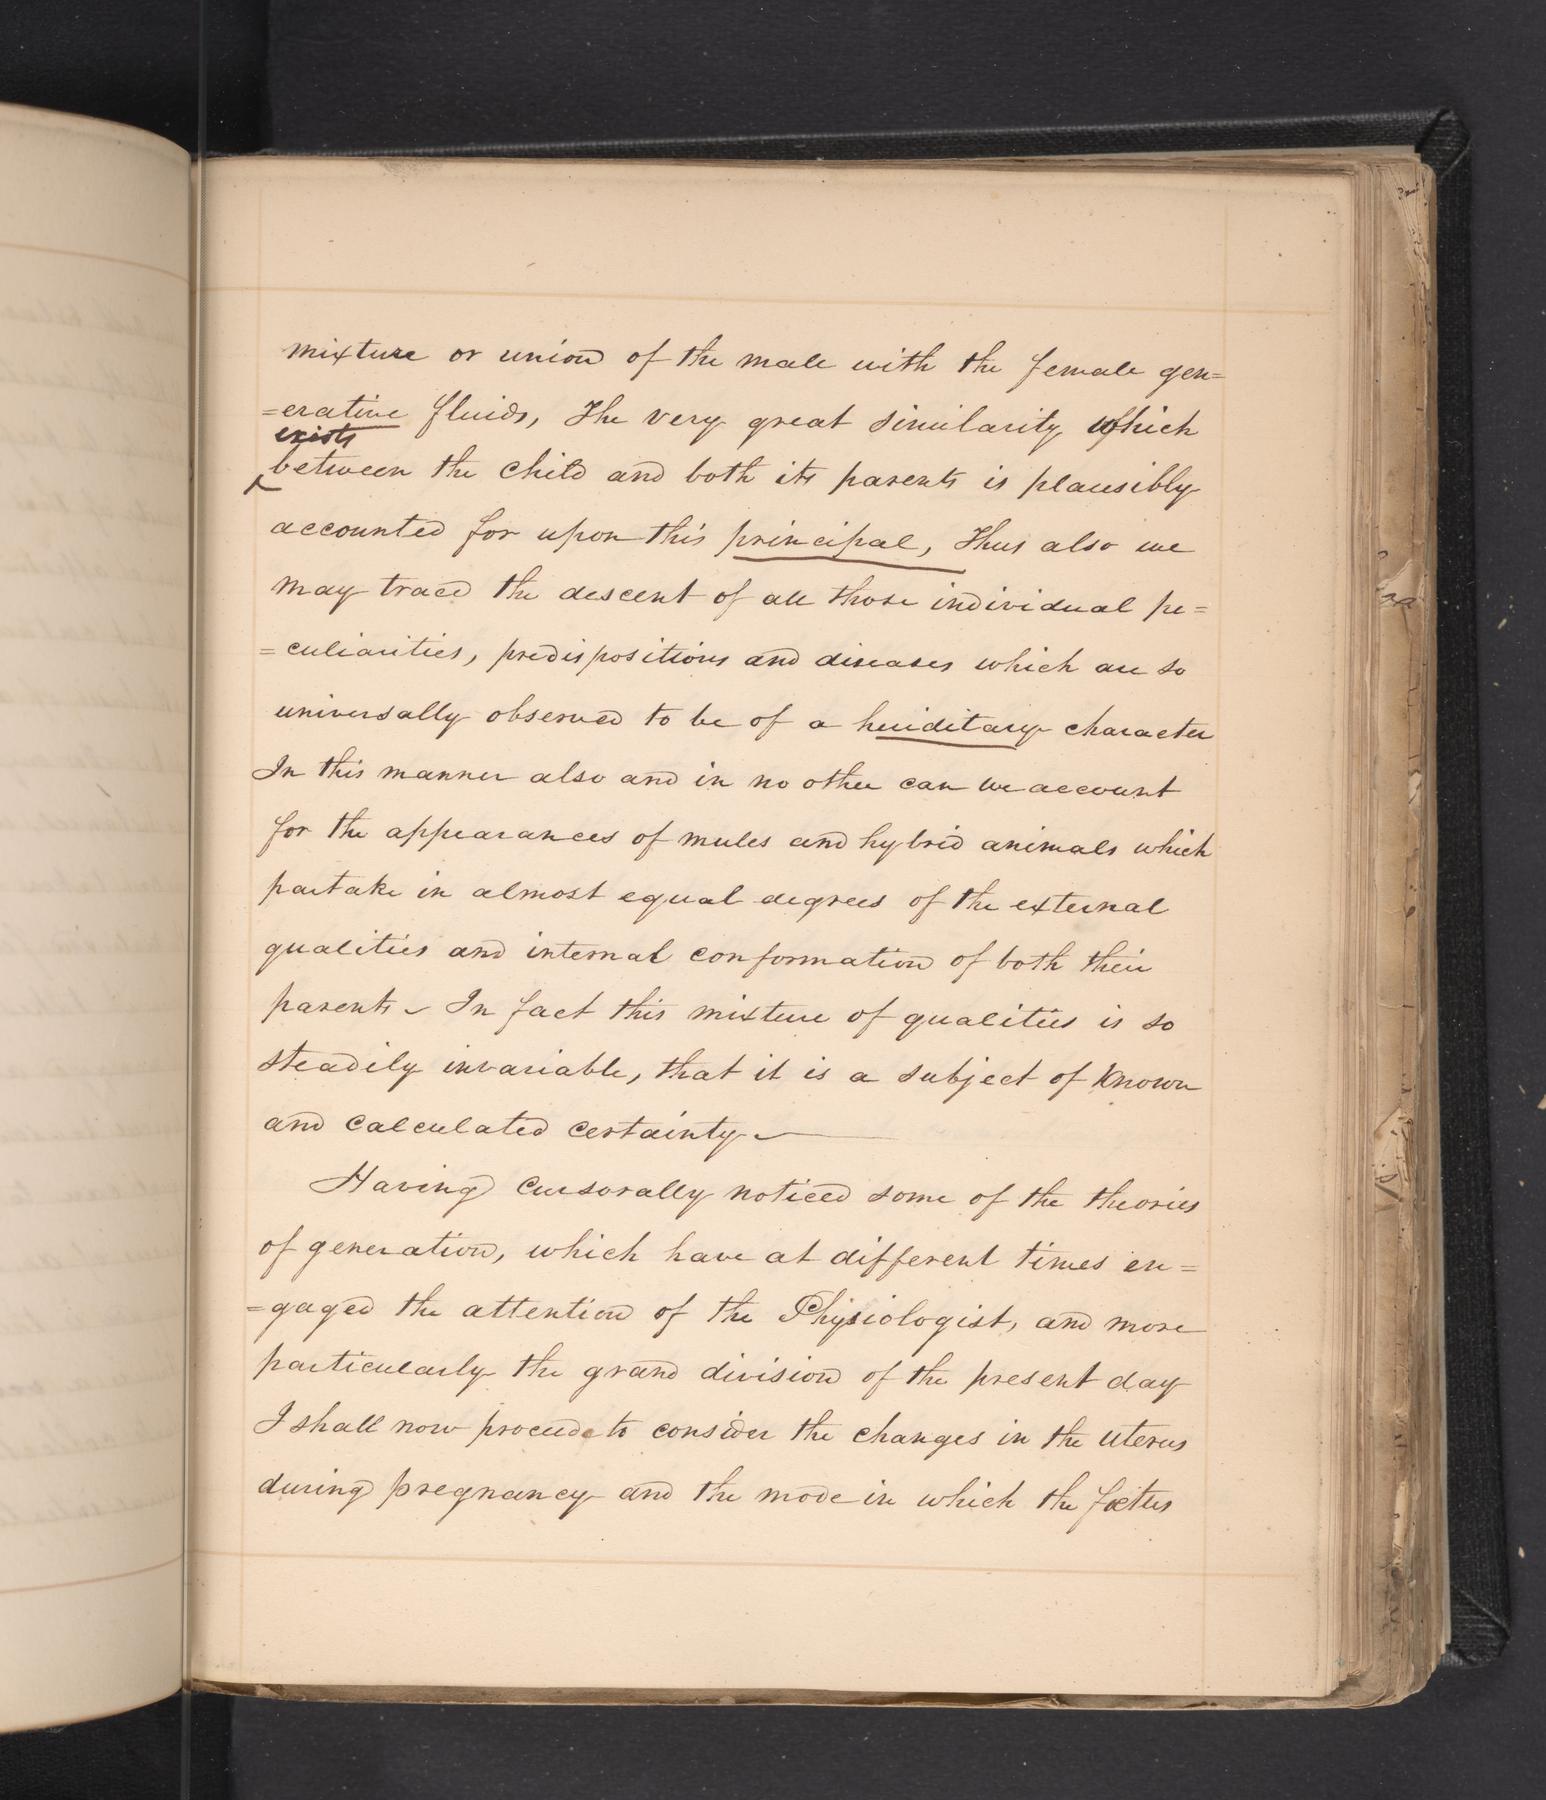 mixture or union of the male with the female gen=
=erative fluids, The very great similarity which
exists
between the child and both its parents is plausibly
accounted for upon this principal, Thus also we
may traced the descent of all those individual pe=
=culiarities, predispositions and diseases which are so
universally observed to be of a heriditary character
In this manner also and in no other can we account
for the appearances of mules and hybrid animals which
partake in almost equal degrees of the external
qualities and internal conformation of both their
parents - In fact this mixture of qualities is so
steadily invariable, that it is a subject of known
and calculated certainty -
Having cursorally noticed some of the theories
of generation, which have at different times en=
=gaged the attention of the Physiologist, and more
particularly the grand division of the present day
I shall now proceed to consider the changes in the uterus
during pregnancy and the mode in which the fœtus